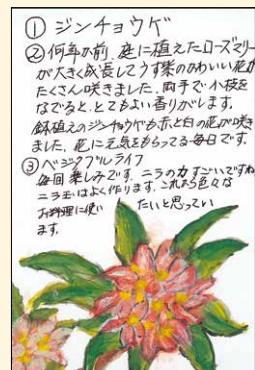 ① ジンチョウゲ
② 何年か前、庭に植えたローズマリー
が大きく成長してうす紫のかわいい花が
たくさん咲きました。両手で小枝を
なでると、とてもよい香りがします。
鉢植えのジンチョウゲも赤と白の花が咲き
ました。花に元気をもらってる毎日です。
③ ベジタブルライフ
毎回楽しみです。ニラの力すごいですね
ニラ玉はよく作ります。これから色々な
お料理に使い たいと思ってい
ます。